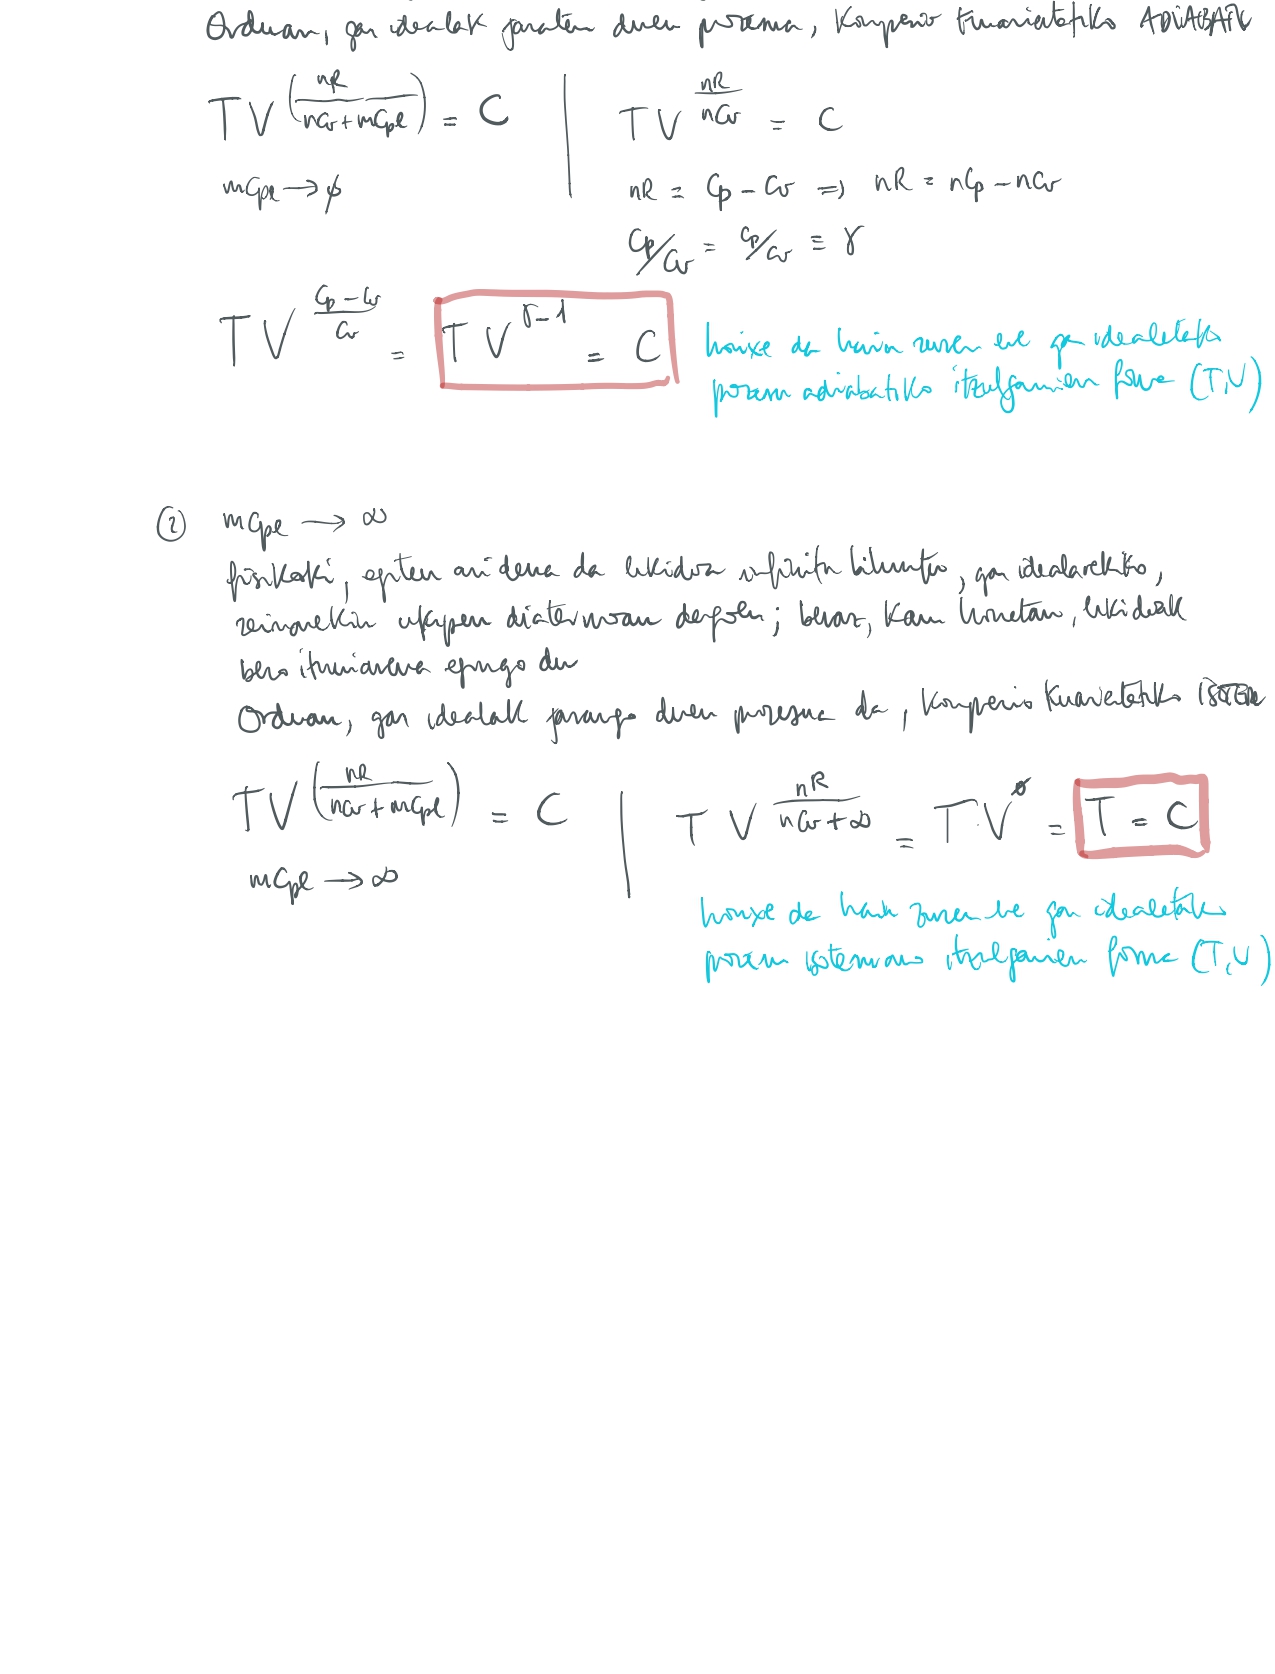 Orduan, gas idealak jasaten duen prozesua, konpresio kuasiestatiko ADIABATIK
TV^(nR/(nCv + mCpl)) = C
TV^(nR/nCv) = C
mCpl → ∅
nR = Cp - Cv ⇒ nR = nCp - nCv
Cp/Cv = cp/cv ≡ γ
TV^((Cp - Cv)/Cv) = TV^(γ-1) = C
hauxe da hain zuzen ere gas idealetako
prozesu adiabatiko itzulgarrien forma (T,V)
② mCpl → ∞
fisikoki, egiten ari dena da likidoa infinitu bihurtu, gas idealarekiko,
zeinarekin ukipen diatermoan dagoen; beraz, kasu honetan, likidoak
bero iturriarena egingo du
Orduan, gas idealak jasango duen prozesua da, konpresio kuasiestatiko ISOTER
TV^(nR/(nCv + mCpl)) = C
TV^(nR/(nCv + ∞)) = TV^∅ = T = C
mCpl → ∞
hauxe da hain zuzen ere gas idealetako
prozesu isotermano itzulgarrien forma (T,V)